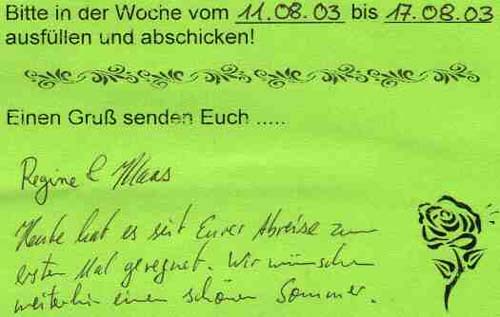 Bitte in der Woche vom 11.08.03 bis 17.08.03
ausfüllen und abschicken!
Einen Gruß senden Euch .....
Regine & Klaas
Heute hat es seit Eurer Abreise zum
ersten Mal geregnet. Wir wünschen
weiterhin einen schönen Sommer.